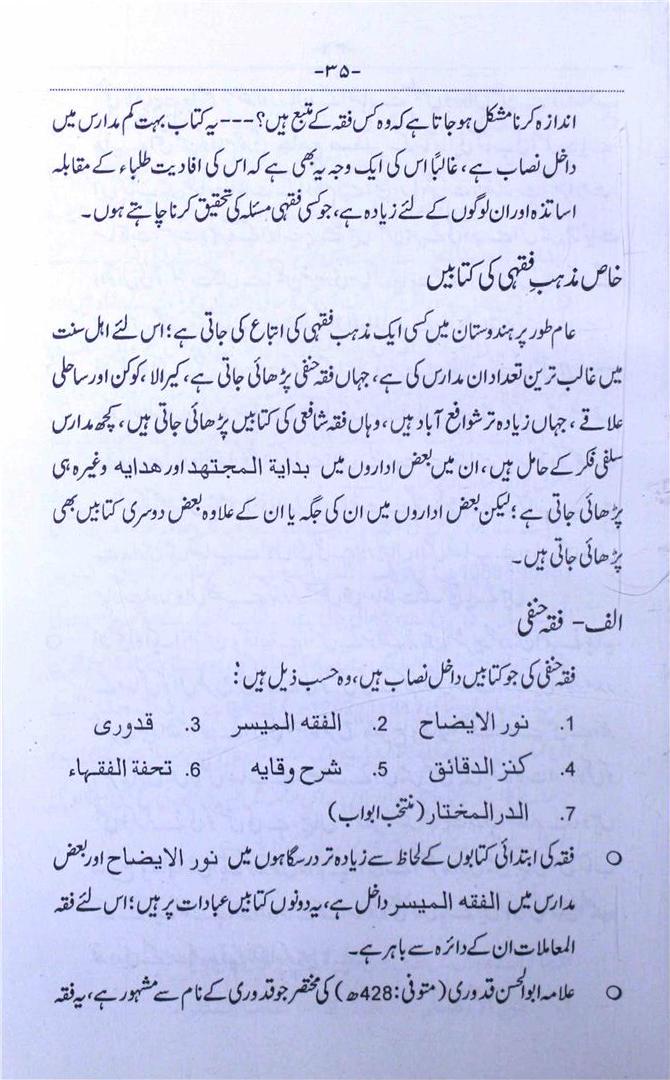 -۳۵-
اندازہ کرنا مشکل ہوجاتا ہے کہ وہ کس فقہ کے متبع ہیں؟ --- یہ کتاب بہت کم مدارس میں
داخل نصاب ہے، غالباً اس کی ایک وجہ یہ بھی ہے کہ اس کی افادیت طلباء کے مقابلہ
اساتذہ اور ان لوگوں کے لئے زیادہ ہے، جو کسی فقہی مسئلہ کی تحقیق کرنا چاہتے ہوں۔
خاص مذہبِ فقہی کی کتابیں
عام طور پر ہندوستان میں کسی ایک مذہب فقہی کی اتباع کی جاتی ہے؛ اس لئے اہل سنت
میں غالب ترین تعداد ان مدارس کی ہے، جہاں فقہ حنفی پڑھائی جاتی ہے، کیرالا، کوکن اور ساحلی
علاقے، جہاں زیادہ تر شوافع آباد ہیں، وہاں فقہ شافعی کی کتابیں پڑھائی جاتی ہیں، کچھ مدارس
سلفی فکر کے حامل ہیں، ان میں بعض اداروں میں بدایة المجتهد اور هدایه وغیرہ ہی
پڑھائی جاتی ہے؛ لیکن بعض اداروں میں ان کی جگہ یا ان کے علاوہ بعض دوسری کتابیں بھی
پڑھائی جاتی ہیں۔
الف - فقہ حنفی
فقہ حنفی کی جو کتابیں داخل نصاب ہیں، وہ حسب ذیل ہیں:
1. نور الایضاح 2. الفقه المیسر 3. قدوری
4. کنز الدقائق 5. شرح وقایه 6. تحفة الفقهاء
7. الدر المختار (منتخب ابواب)
○ فقہ کی ابتدائی کتابوں کے لحاظ سے زیادہ تر درسگاہوں میں نور الایضاح اور بعض
مدارس میں الفقه المیسر داخل ہے، یہ دونوں کتابیں عبادات پر ہیں؛ اس لئے فقہ
المعاملات ان کے دائرہ سے باہر ہے۔
○ علامہ ابوالحسن قدوری (متوفی: 428ھ) کی مختصر جو قدوری کے نام سے مشہور ہے، یہ فقہ